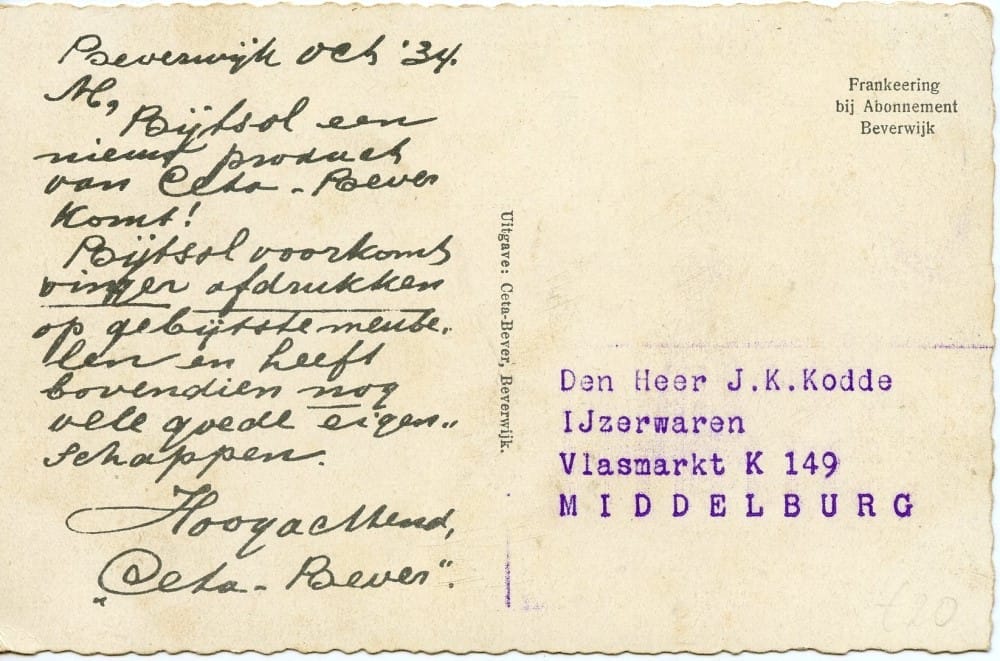 Beverwijk oct '34.
M,
Bijtsol een
nieuw product
van Ceta-Bever
komt!
Bijtsol voorkomt
vinger afdrukken
op gebijtste meube-
len en heeft
bovendien nog
vele goede eigen-
schappen.
Hoogachtend,
"Ceta-Bever".
Uitgave: Ceta-Bever, Beverwijk.
Frankeering
bij Abonnement
Beverwijk
Den Heer J.K.Kodde
IJzerwaren
Vlasmarkt K 149
MIDDELBURG
€20